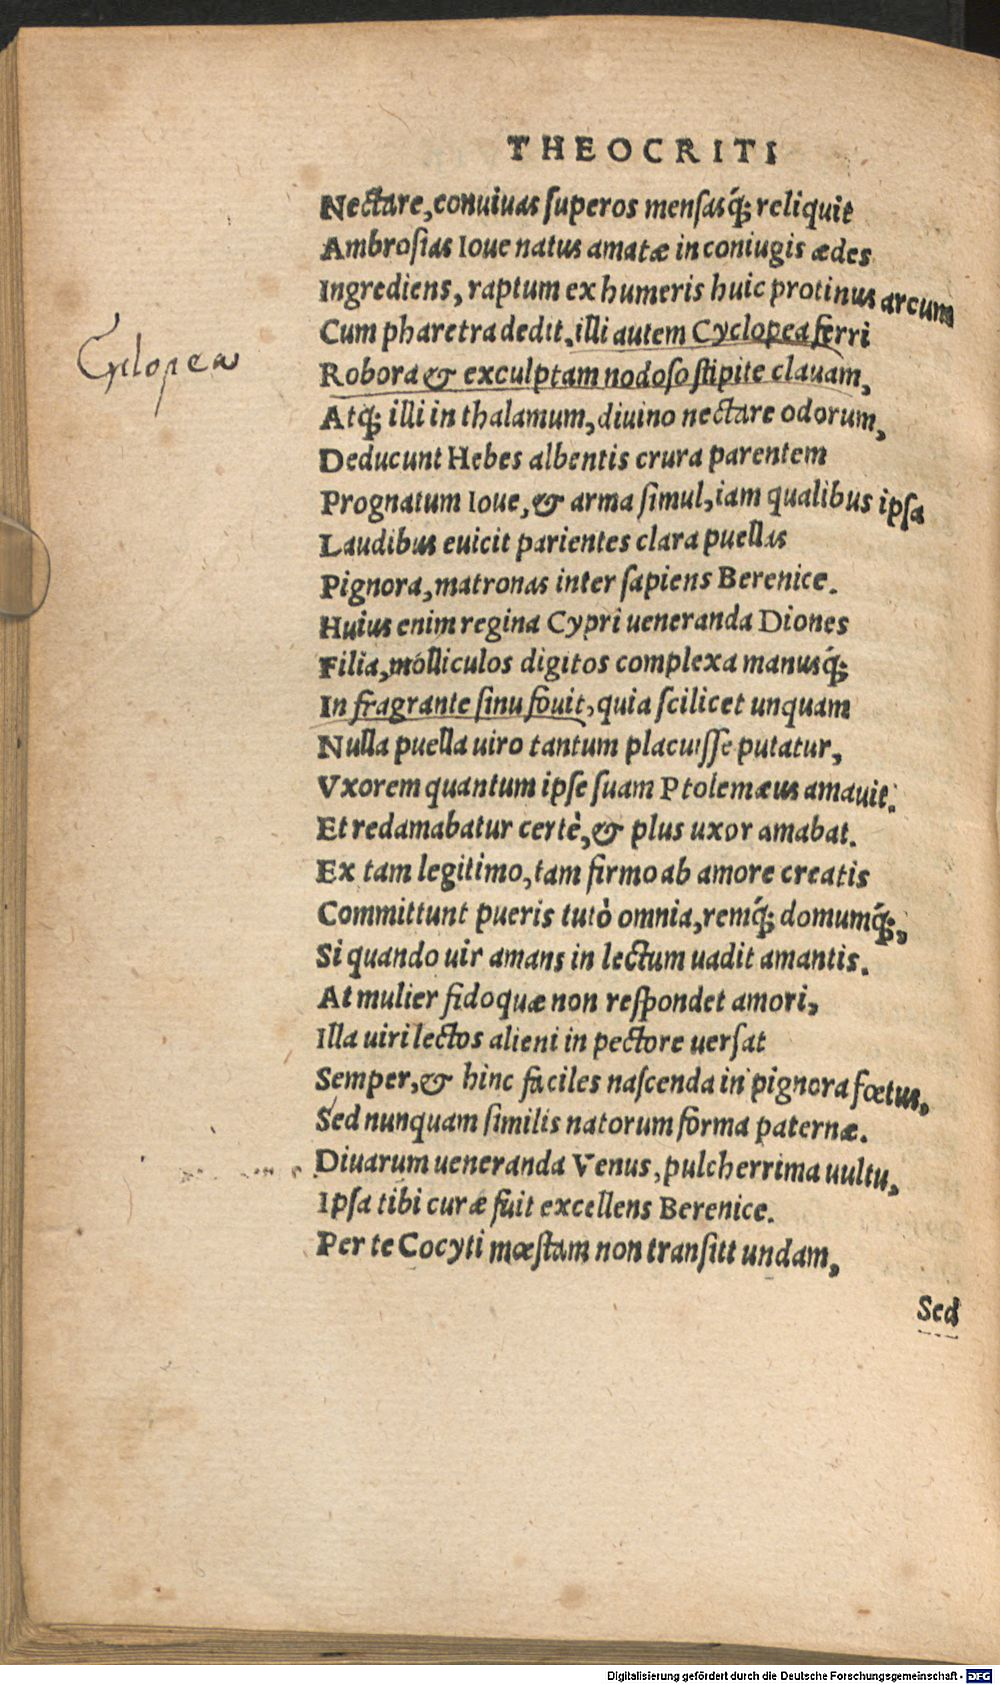 THEOCRITI
Nectare, conuiuas ſuperos menſasq́; reliquit
Ambroſias Ioue natus amatæ in coniugis ædes
Ingrediens, raptum ex humeris huic protinus arcum
Cum pharetra dedit, illi autem Cyclopea ferri
Cyclopea
Robora & exculptam nodoſo ſtipite clauam,
Atq́; illi in thalamum, diuino nectare odorum,
Deducunt Hebes albentis crura parentem
Prognatum Ioue, & arma ſimul, iam qualibus ipſa
Laudibus euicit parientes clara puellas
Pignora, matronas inter ſapiens Berenice.
Huius enim regina Cypri ueneranda Diones
Filia, molliculos digitos complexa manusq́;
In fragrante ſinu fouit, quia ſcilicet unquam
Nulla puella uiro tantum placuiſſe putatur,
Vxorem quantum ipſe ſuam Ptolemæus amauit.
Et redamabatur certè, & plus uxor amabat.
Ex tam legitimo, tam firmo ab amore creatis
Committunt pueris tutò omnia, remq́; domumq́;,
Si quando uir amans in lectum uadit amantis.
At mulier fido quæ non reſpondet amori,
Illa uiri lectos alieni in pectore uerſat
Semper, & hinc faciles naſcenda in pignora fœtus,
Sed nunquam ſimilis natorum forma paternæ.
Diuarum ueneranda Venus, pulcherrima uultu,
Ipſa tibi curæ fuit excellens Berenice.
Per te Cocyti mœſtam non tranſitt undam,
Sed
Digitalisierung gefördert durch die Deutsche Forschungsgemeinschaft - DFG